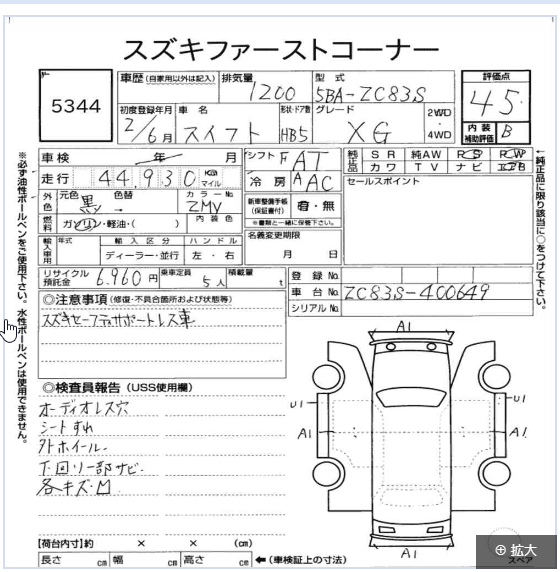 スズキファーストコーナー
5344
車歴 (自家用以外は記入) 排気量 1200 型式 5BA-ZC83S
評価点 4.5
初度登録年月 2/6月 車名 スイフト 形状・ドア数 HB5 グレード XG 2WD・4WD
内装補助評価 B
車検 年 月 シフト FAT
純正品 SR 純AW PS PW
カワ TV ナビ エアB
走行 44,930 Km マイル 冷房 AAC
セールスポイント
外色 元色 黒 色替 カラーNo. ZMV 内装色
新車整備手帳(保証書付) 有・無
※書類と一緒に保管下さい。
燃料 ガソリン・軽油・( )
名義変更期限 月 日
輸入車用 年式 輸入区分 ディーラー・並行 ハンドル 左・右
リサイクル預託金 6,960円 乗車定員 5人 積載量 t
登録No.
車台No. ZC83S-400649
シリアルNo.
◎注意事項 (修復・不具合箇所および状態等)
スズキセーフティサポートレス車
◎検査員報告 (USS使用欄)
オーディオレス穴
シートすれ
外ホイール.
下回り一部サビ.
各キズ.凹
A1
U1
U1
A1
A1
A1
【荷台内寸】約 × × (cm)
長さ cm 幅 cm 高さ cm ←(車検証上の寸法)
スペア
拡大
※必ず油性ボールペンをご使用下さい。水性ボールペンは使用できません。
←純正品に限り該当に○をつけて下さい。